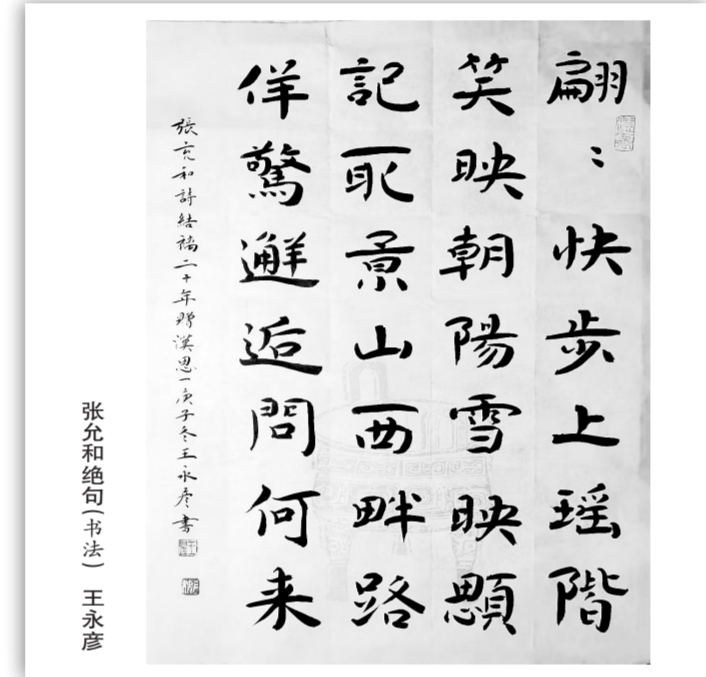 翩〻快步上瑶階
笑映朝陽雪映顋
記取景山西畔路
佯驚邂逅問何来
張充和詩結褵二十年贈漢思一庚子冬王永彦書
张允和绝句(书法) 王永彦